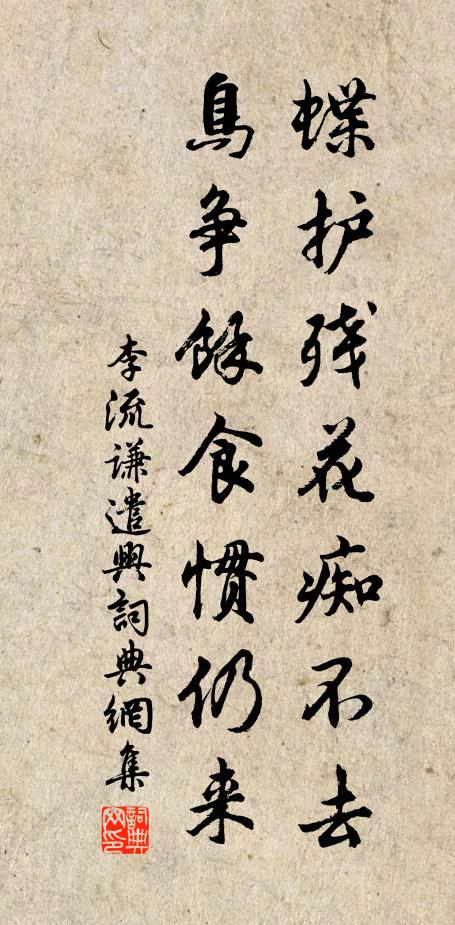 蝶护残花痴不去
鳥争餘食惯仍来
李流谦遣興詞典網集
詞典网印